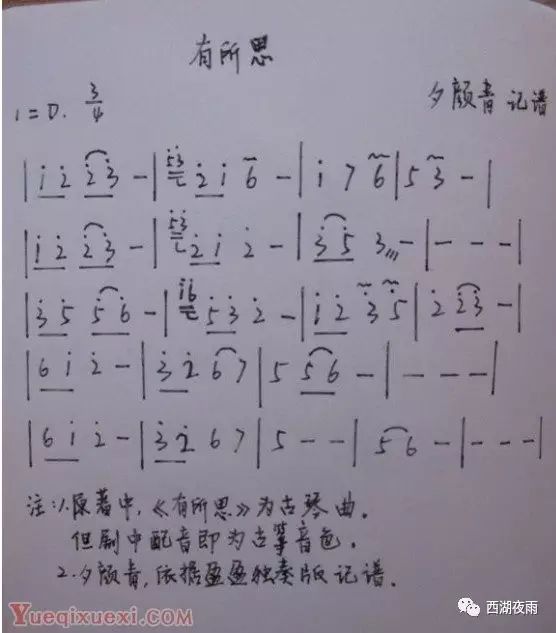 有所思
1=D. 3/4
夕颜青 记谱
| i̇ 2̇ 2̇ 3̇ - | 5̇3̇ 2̇ i̇ 6 - | i̇ 7 6 | 5 3 - |
| i̇ 2̇ 2̇ 3̇ - | 5̇3̇ 2̇ i̇ 2̇ - | 3̇ 5̇ 3 - | - - - |
| 3̇ 5̇ 5̇ 6̇ - | i̇6̇ 5̇ 3̇ 2̇ - | i̇ 2̇ 3̇ 5̇ | 2̇ 2̇3̇ - |
| 6 i̇ 2̇ - | 3̇ 2̇ 6 7 | 5 5 6 - | - - - |
| 6 i̇ 2̇ - | 3̇ 2̇ 6 7 | 5 - - | 5 6 - | - - - |
注:1.原著中,《有所思》为古琴曲。
但剧中配音即为古筝音色。
2.夕颜青,依据盈盈独奏版记谱。
Yueqixuexi.com
西湖夜雨